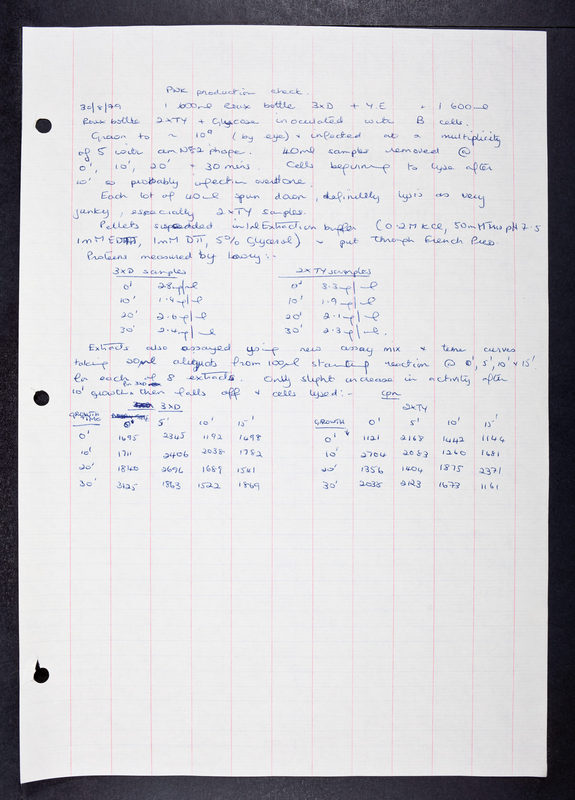 PNK production check.
30/8/79 1 600ml Roux bottle 3xD + Y.E + 1 600ml
Roux bottle 2xTY + Glycerol inoculated with B cells.
Grown to ~ 10⁸ (by eye) & infected at a multiplicity
of 5 with am N82 phage. 40ml samples removed @
0', 10', 20' + 30 mins. Cells beginning to lyse after
10' so probably infection overdone.
Each lot of 40ml spun down, definitely lysis as very
junky, especially 2xTY samples.
Pellets suspended in 1ml Extraction buffer (0.2M KCl, 50mM Tris pH 7.5
1mM EDTA, 1mM DTT, 5% Glycerol) & put through French Press
Proteins measured by Lowry :-
3XD samples 2xTY samples
0' 0' 3.3
10' 10' 1.9
20' 2.6 20' 2.1
30' 2.4 30' 2.3
Extracts also assayed using new assay mix & time curves
taking 20µl aliquots from 100µl starting reaction @ 0', 5', 10' & 15'
for each of 8 extracts. Only slight increase in activity after
10' growth for 3XD then falls off & cells lysed :- cpm
3XD 2xTY
GROWTH TIME 0' 5' 10' 15' GROWTH 0' 5' 10' 15'
0' 1695 2345 1192 1498 0' 1121 2168 1442 1144
10' 1711 2406 2038 1782 10' 2704 2083 1260 1681
20' 1840 2696 1689 1541 20' 1356 1404 1875 2371
30' 3125 1863 1522 1869 30' 2038 2123 1673 1161